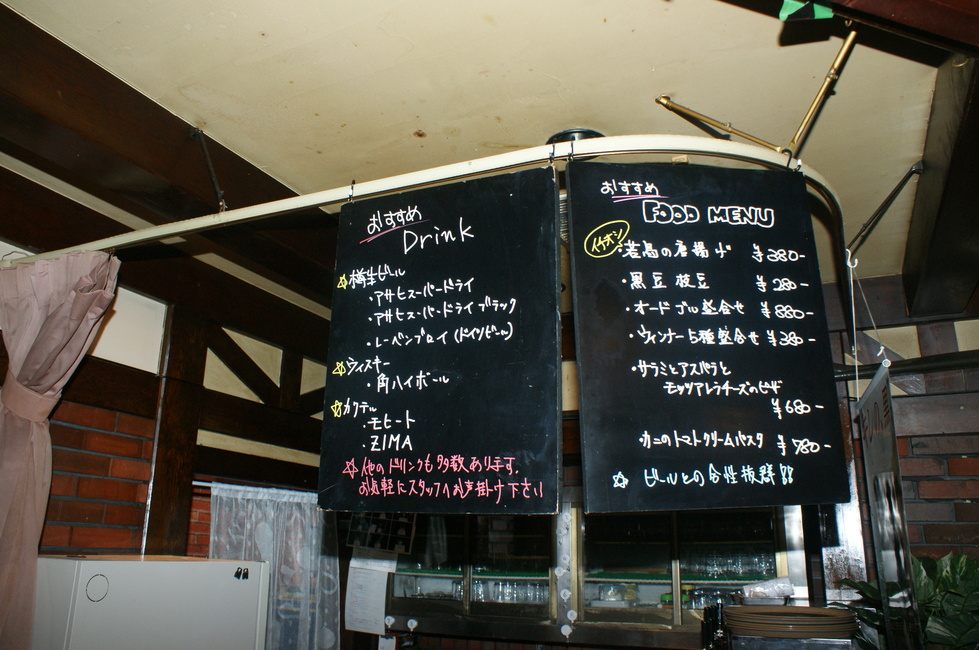 おすすめ
Drink
☆樽生ビール
・アサヒスーパードライ
・アサヒスーパードライ ブラック
・レーベンブロイ (ドイツビール)
☆ウィスキー
・角ハイボール
☆カクテル
・モヒート
・ZIMA
☆他のドリンクも多数あります。
お気軽にスタッフへお声掛け下さい
おすすめ
FOOD MENU
イチオシ
・若鳥の唐揚げ ¥380-
・黒豆枝豆 ¥280-
・オードブル盛合せ ¥880-
・ウィンナー5種盛合せ ¥380-
・サラミとアスパラと
モッツァレラチーズのピザ
¥680-
・カニのトマトクリームパスタ ¥780-
☆ ビールとの合性抜群!!